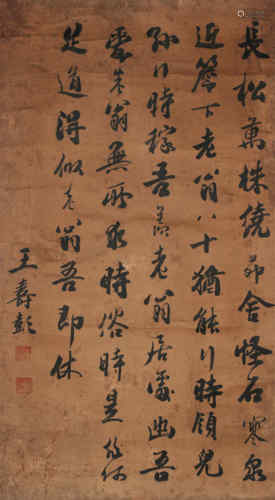 長松萬株繞茆舍怪石寒泉
近簷下老翁八十猶能行時領兒
孫行時稼吾羨老翁居處幽吾
愛老翁無所求時俗時是非何
足道得似老翁吾即休
王壽彭